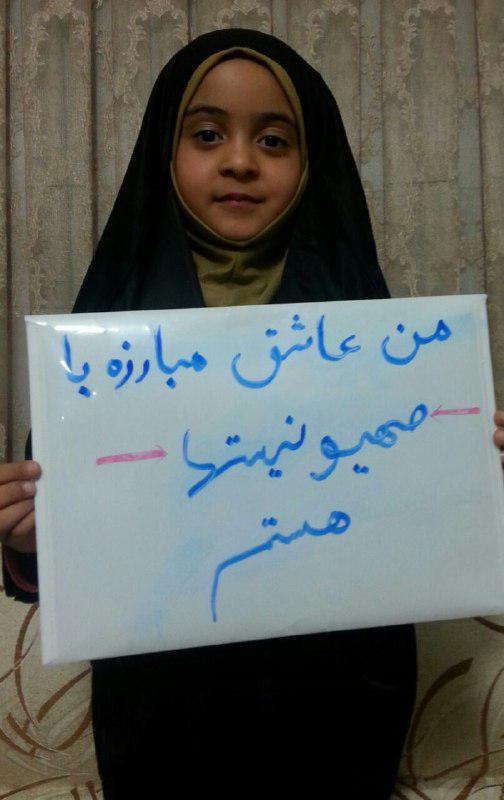 من عاشق مبارزه با
صهیونیستها
هستم